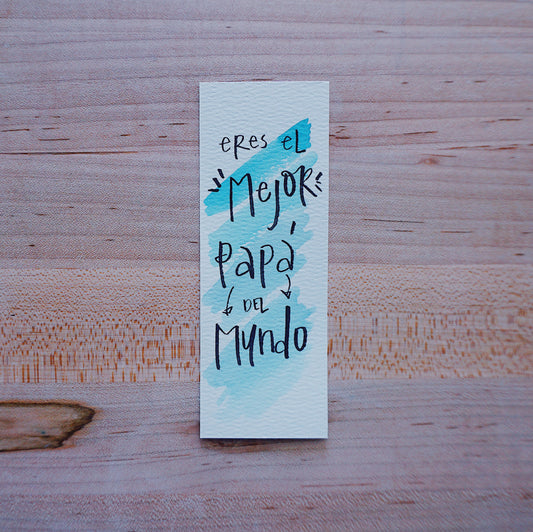 eres el
Mejor
papá
del
Mundo